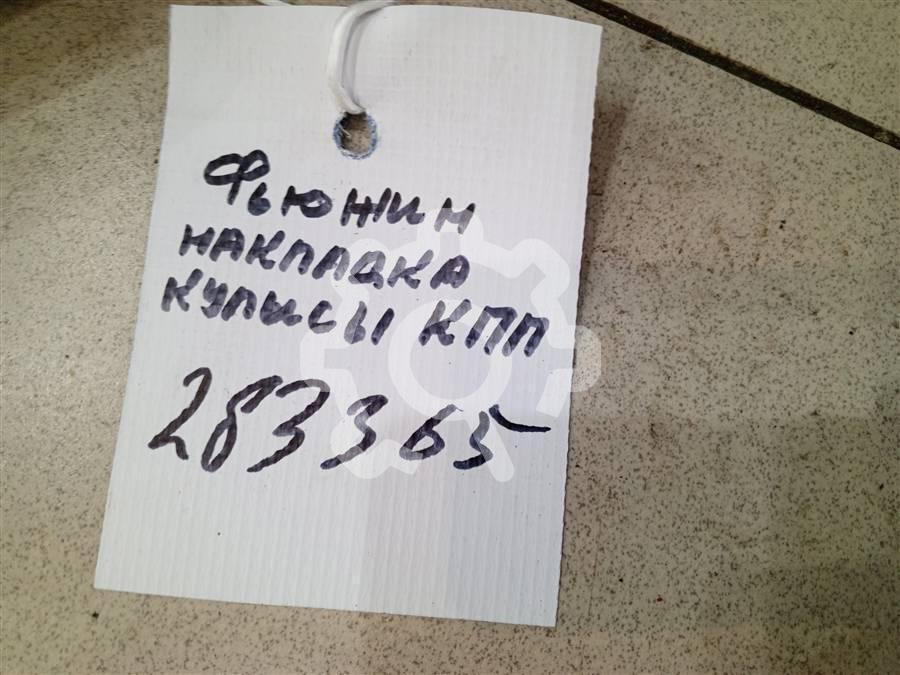 Фьюжин
накладка
кулисы КПП
283365